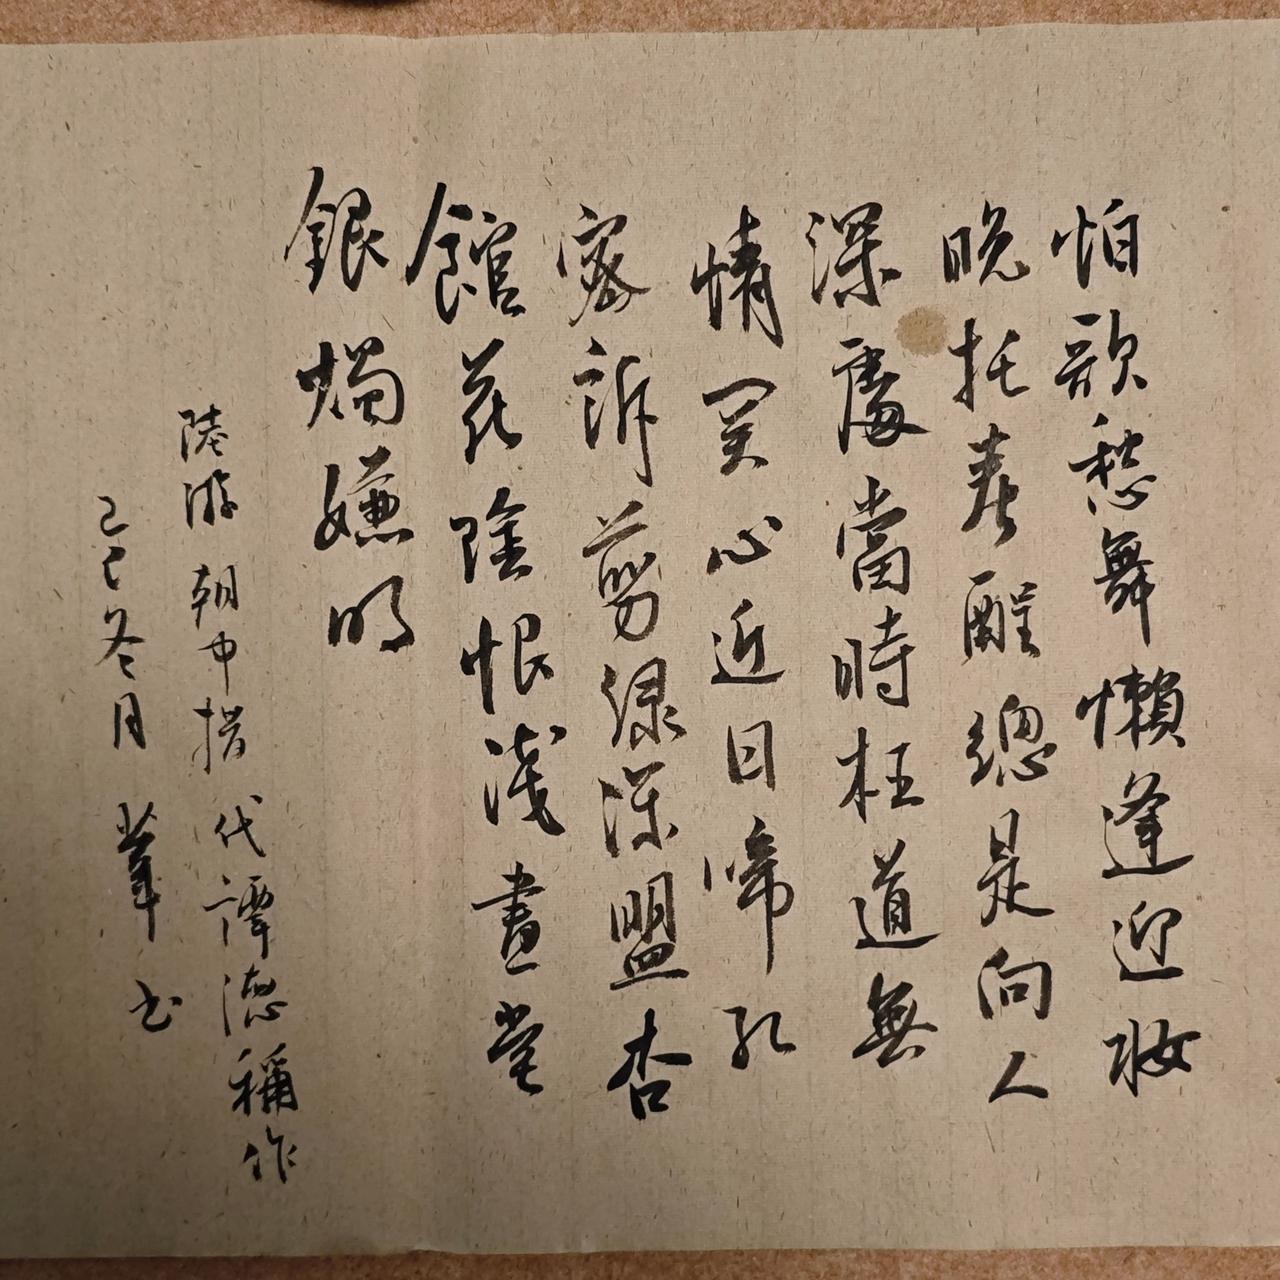 怕歌愁舞懶逢迎妝
晚托春酲總是向人
深處當時枉道無
情関心近日啼紅
密訴剪綠深盟杏
館花陰恨淺畫堂
銀燭嫌明
陸游 朝中措 代譚德稱作
巳冬月 书